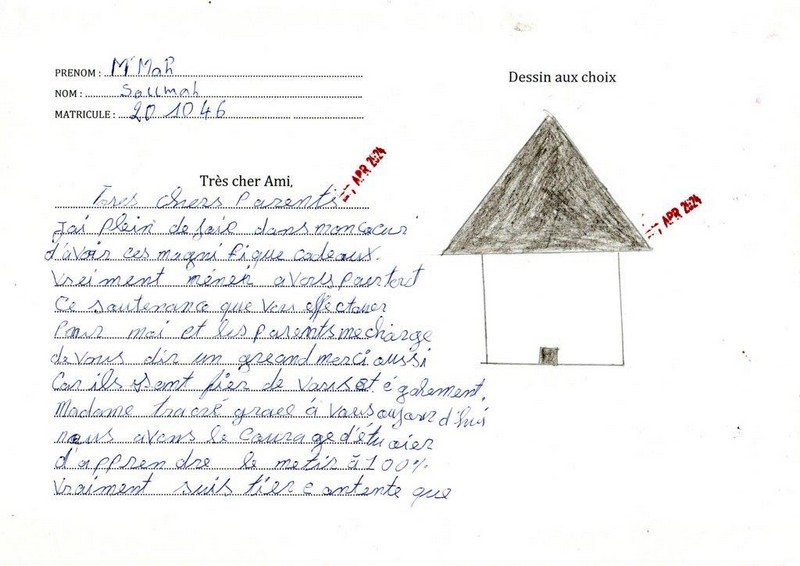 PRENOM : M'Mah
NOM : Soumah
MATRICULE : 20 1046
Dessin aux choix
APR 2024
APR 2024
Très cher Ami,
Tres chers Parents
J'ai plein de joie dans mon cœur
d'avoir ces magnifique cadeaux.
Vreiment à vous partout
Ce soutenance que vous effectuer
Pour moi et les parents me charge
de vous dir un grand merci aussi
Car ils sont fier de vous et également.
Madame grace à vous aujourd'hui
nous avons le courage d'étudier
d'apprendre le metir à 100%
Vraiment suis fier contente que